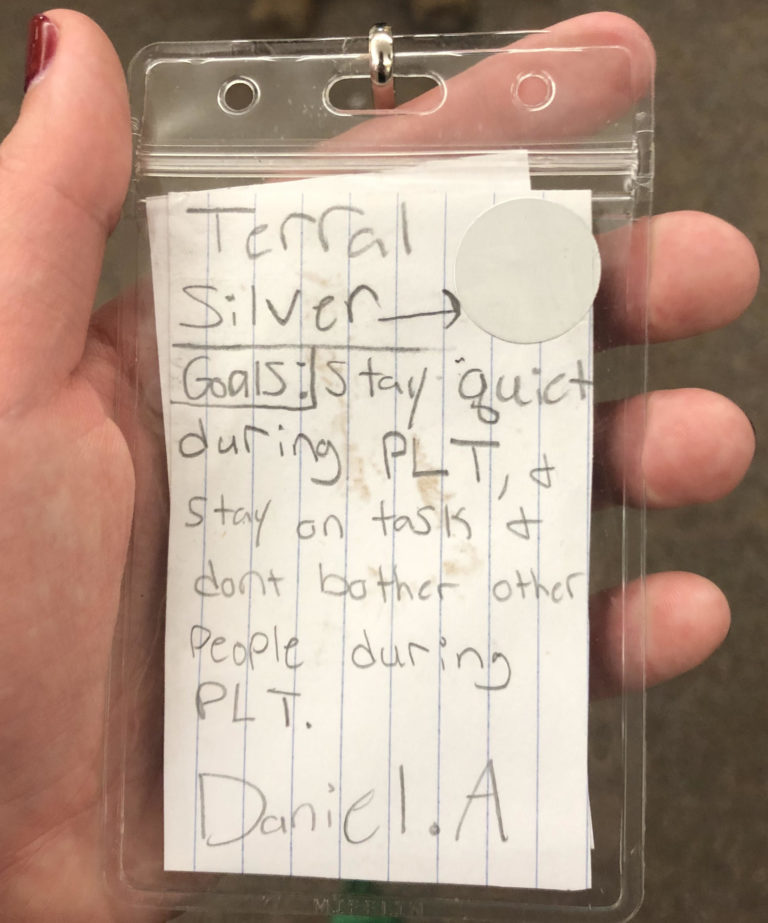 Terral
Silver →
Goals: Stay quiet
during PLT, &
stay on task &
dont bother other
people during
PLT.
Daniel.A
MIFFLIN